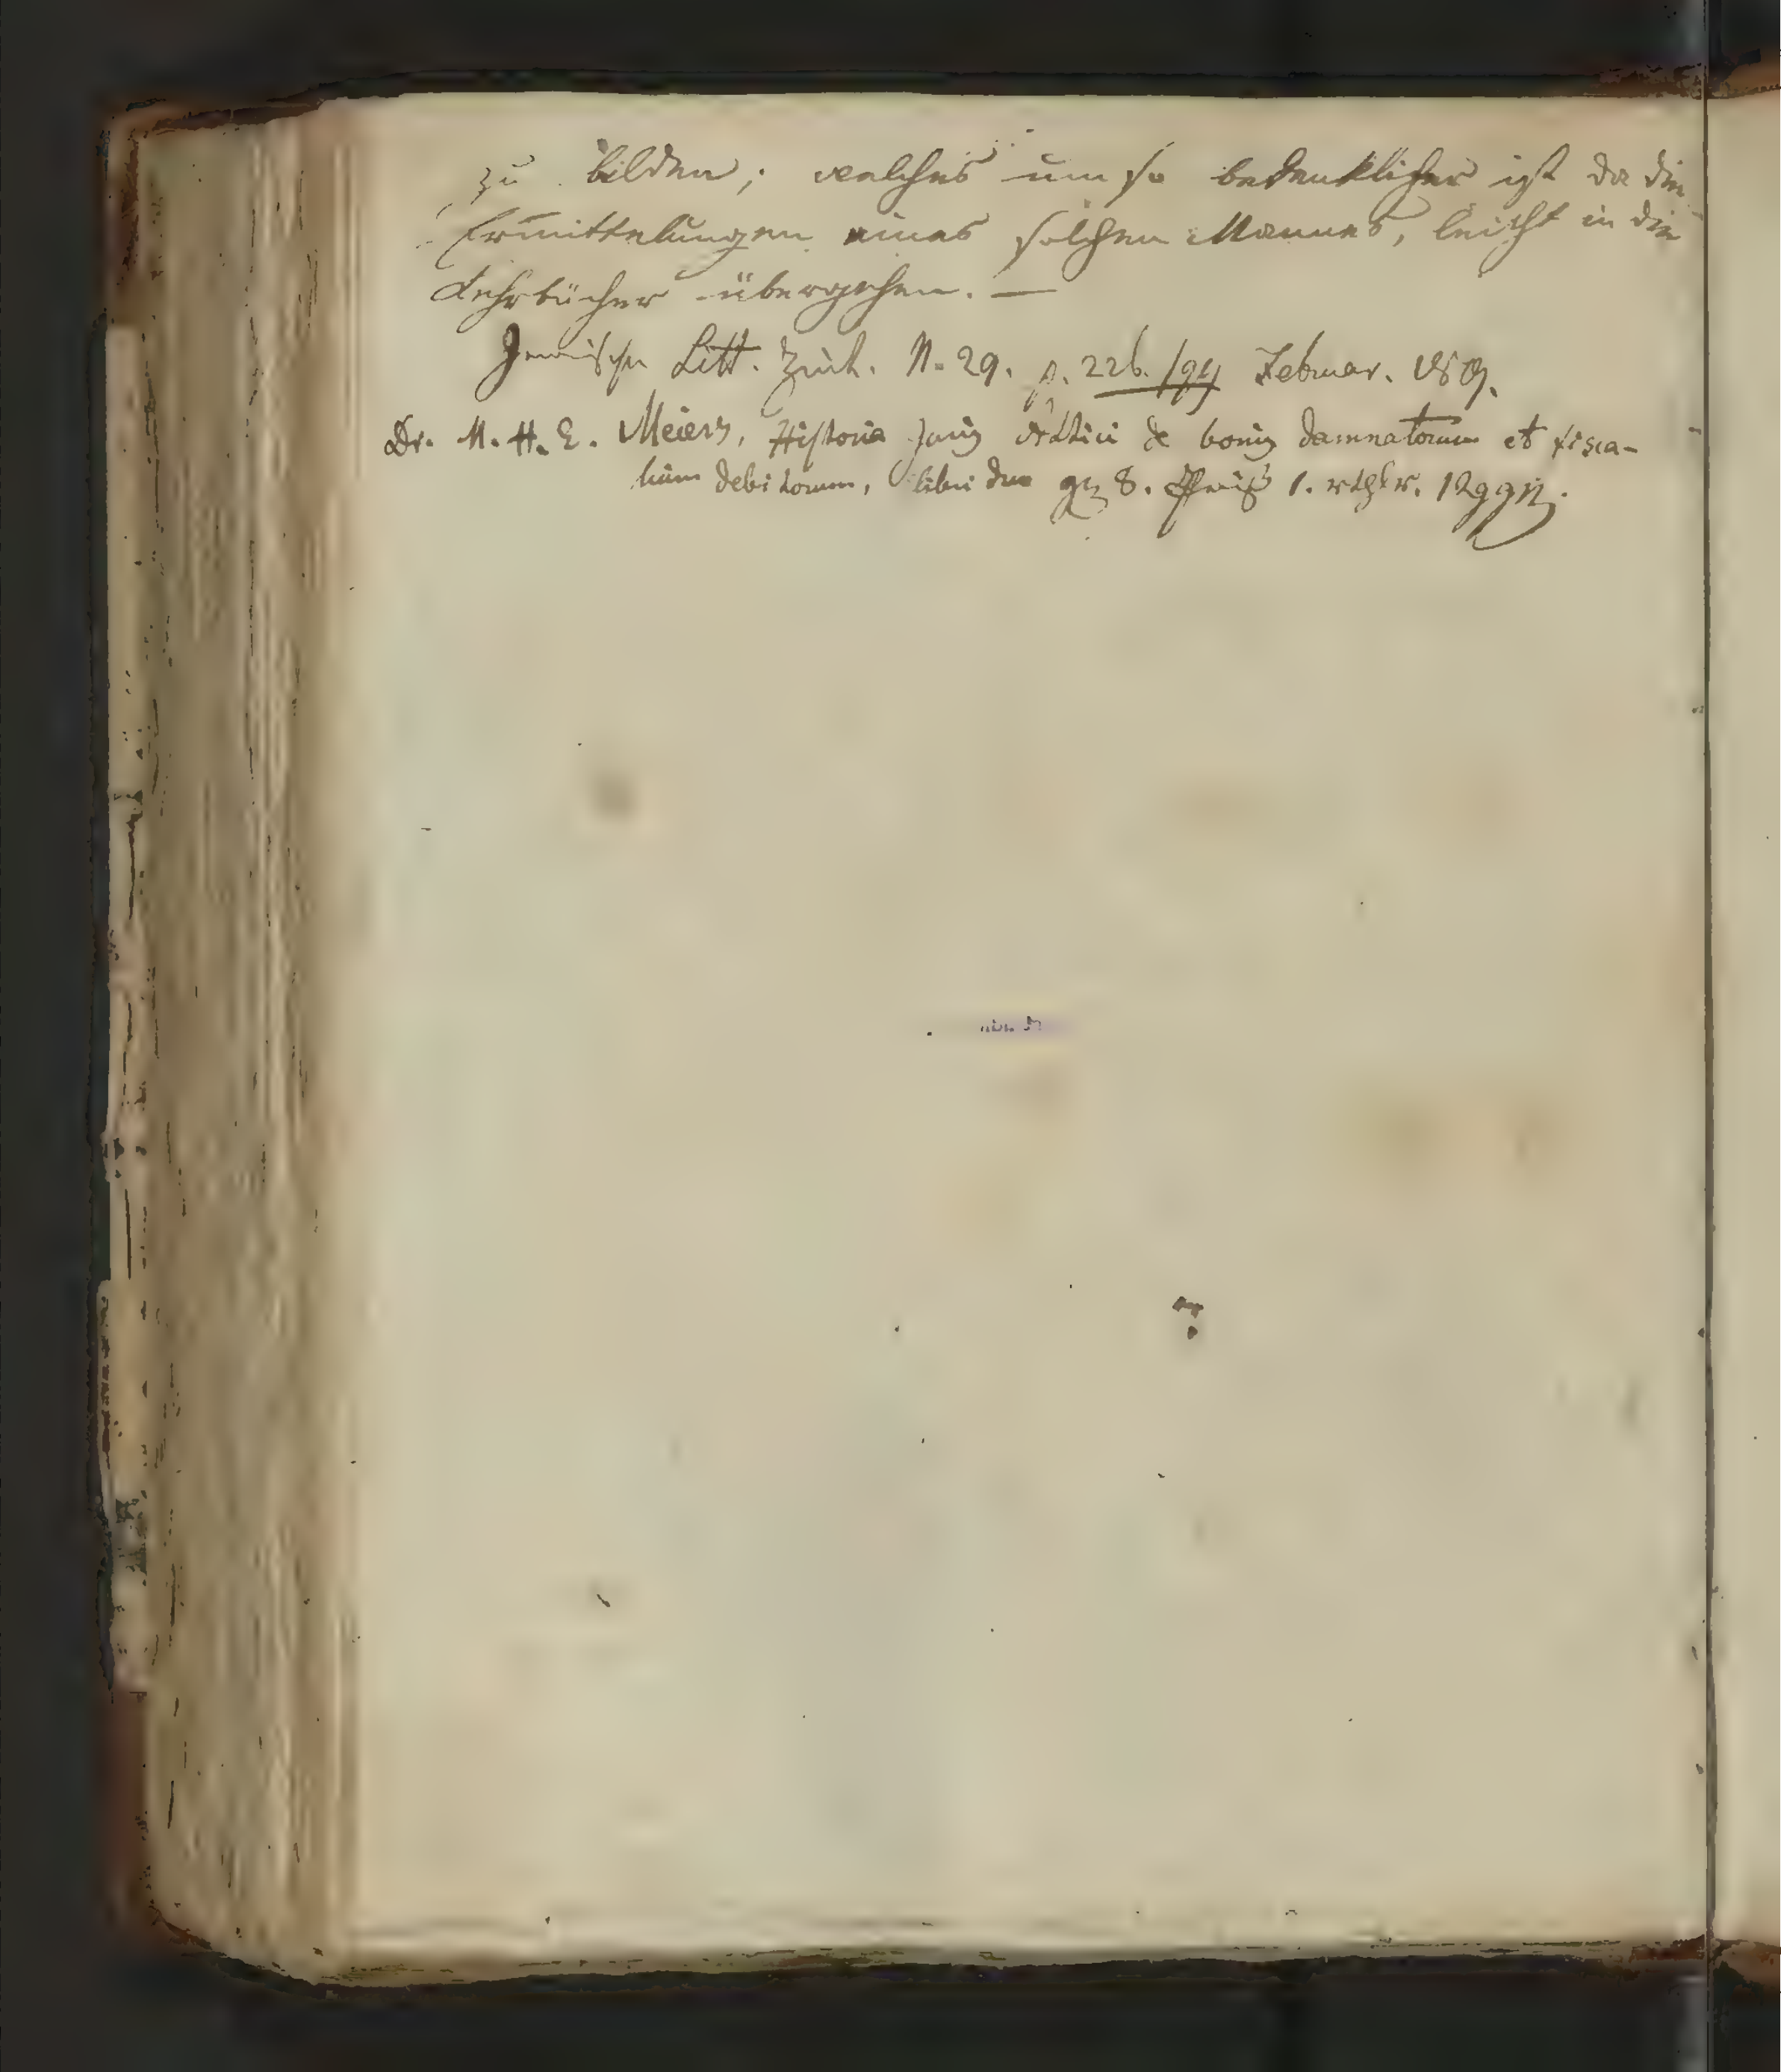 zu bilden; welches um so bedenklicher ist da die
Ermittelungen eines solchen Mannes, leicht in die
Lehrbücher übergehen. —
Jenaische Litt. Zeit. N. 29. p. 226. Februar.
Dr. M. H. E. Meiers, Historia juris Attici de bonis damnatorum et fisca-
lium debitorum, libri duo gr. 8. Preiß 1. rthlr. 12 ggr.